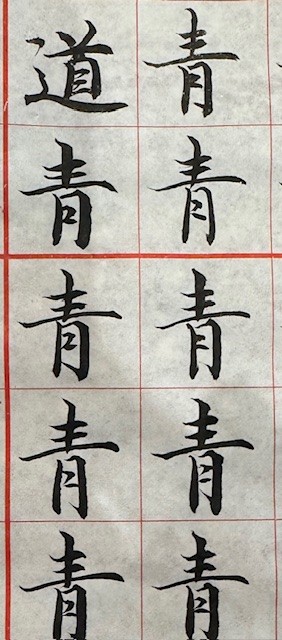 青青青青青
道青青青青